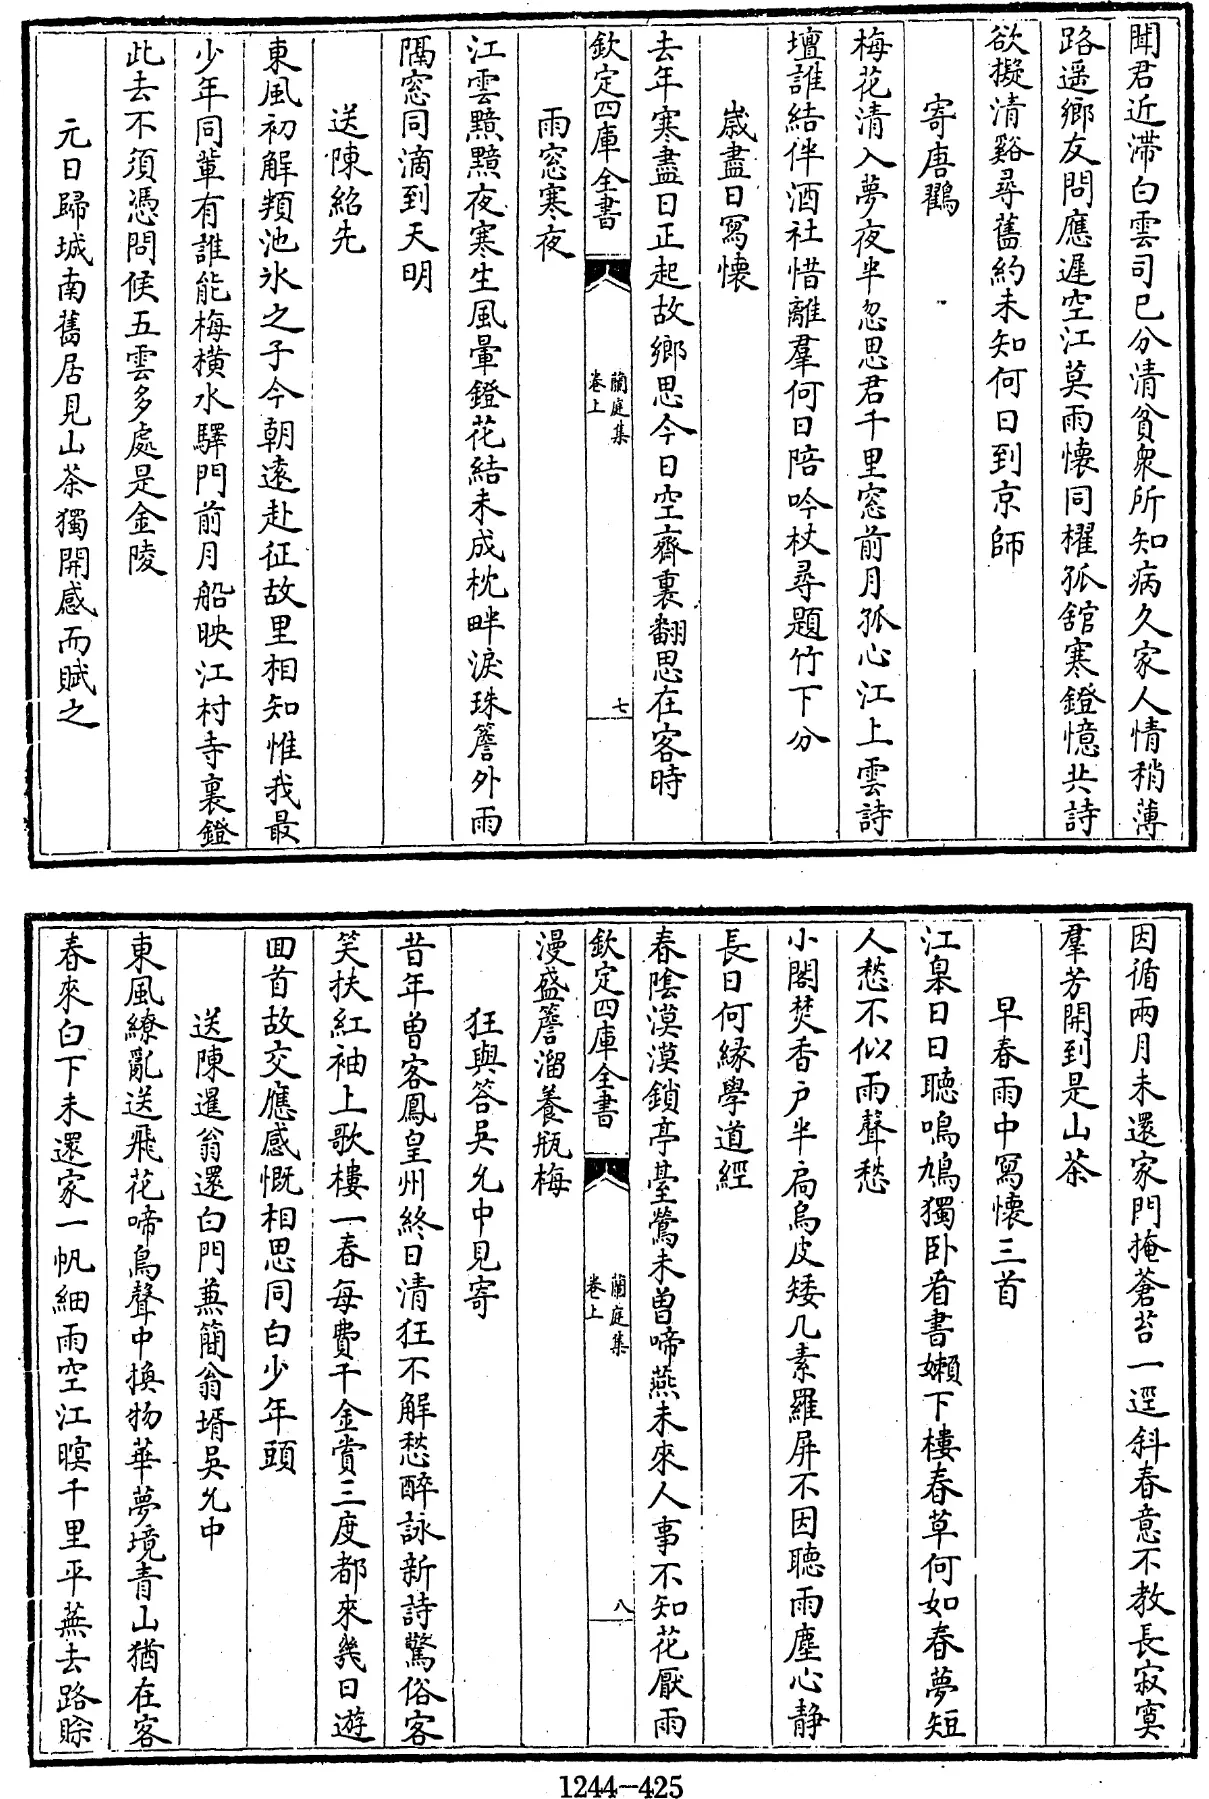 聞君近滯白雲司已分清貧衆所知病久家人情稍薄
路遥鄉友問應遲空江莫雨懷同櫂孤舘寒鐙憶共詩
欲擬清谿尋舊約未知何日到京師
寄唐鸛
梅花清入夢夜半忽思君千里窓前月孤心江上雲詩
壇誰結伴酒社惜離羣何日陪吟杖尋題竹下分
歳盡日寫懷
去年寒盡日正起故鄉思今日空齋裏翻思在客時
欽定四庫全書
蘭庭集
卷上
七
雨窓寒夜
江雲黯黯夜寒生風暈鐙花結未成枕畔淚珠簷外雨
隔窓同滴到天明
送陳紹先
東風初解頖池氷之子今朝遠赴征故里相知惟我最
少年同輩有誰能梅横水驛門前月船映江村寺裏鐙
此去不須憑問候五雲多處是金陵
元日歸城南舊居見山茶獨開感而賦之
因循兩月未還家門掩蒼苔一逕斜春意不教長寂寞
羣芳開到是山茶
早春雨中寫懷三首
江臯日日聽鳴鳩獨卧看書嬾下樓春草何如春夢短
人愁不似雨聲愁
小閣焚香户半扃烏皮矮几素羅屏不因聽雨塵心静
長日何縁學道經
春陰漠漠鎖亭臺鶯未曽啼燕未來人事不知花厭雨
欽定四庫全書
蘭庭集
卷上
八
漫盛簷溜養瓶梅
狂與答吳允中見寄
昔年曽客鳳皇州終日清狂不解愁醉詠新詩驚俗客
笑扶紅袖上歌樓一春每費千金賞三度都來幾日遊
回首故交應感慨相思同白少年頭
送陳暹翁還白門兼簡翁壻吳允中
東風繚亂送飛花啼鳥聲中換物華夢境青山猶在客
春來白下未還家一帆細雨空江暝千里平蕪去路賒
1244-425